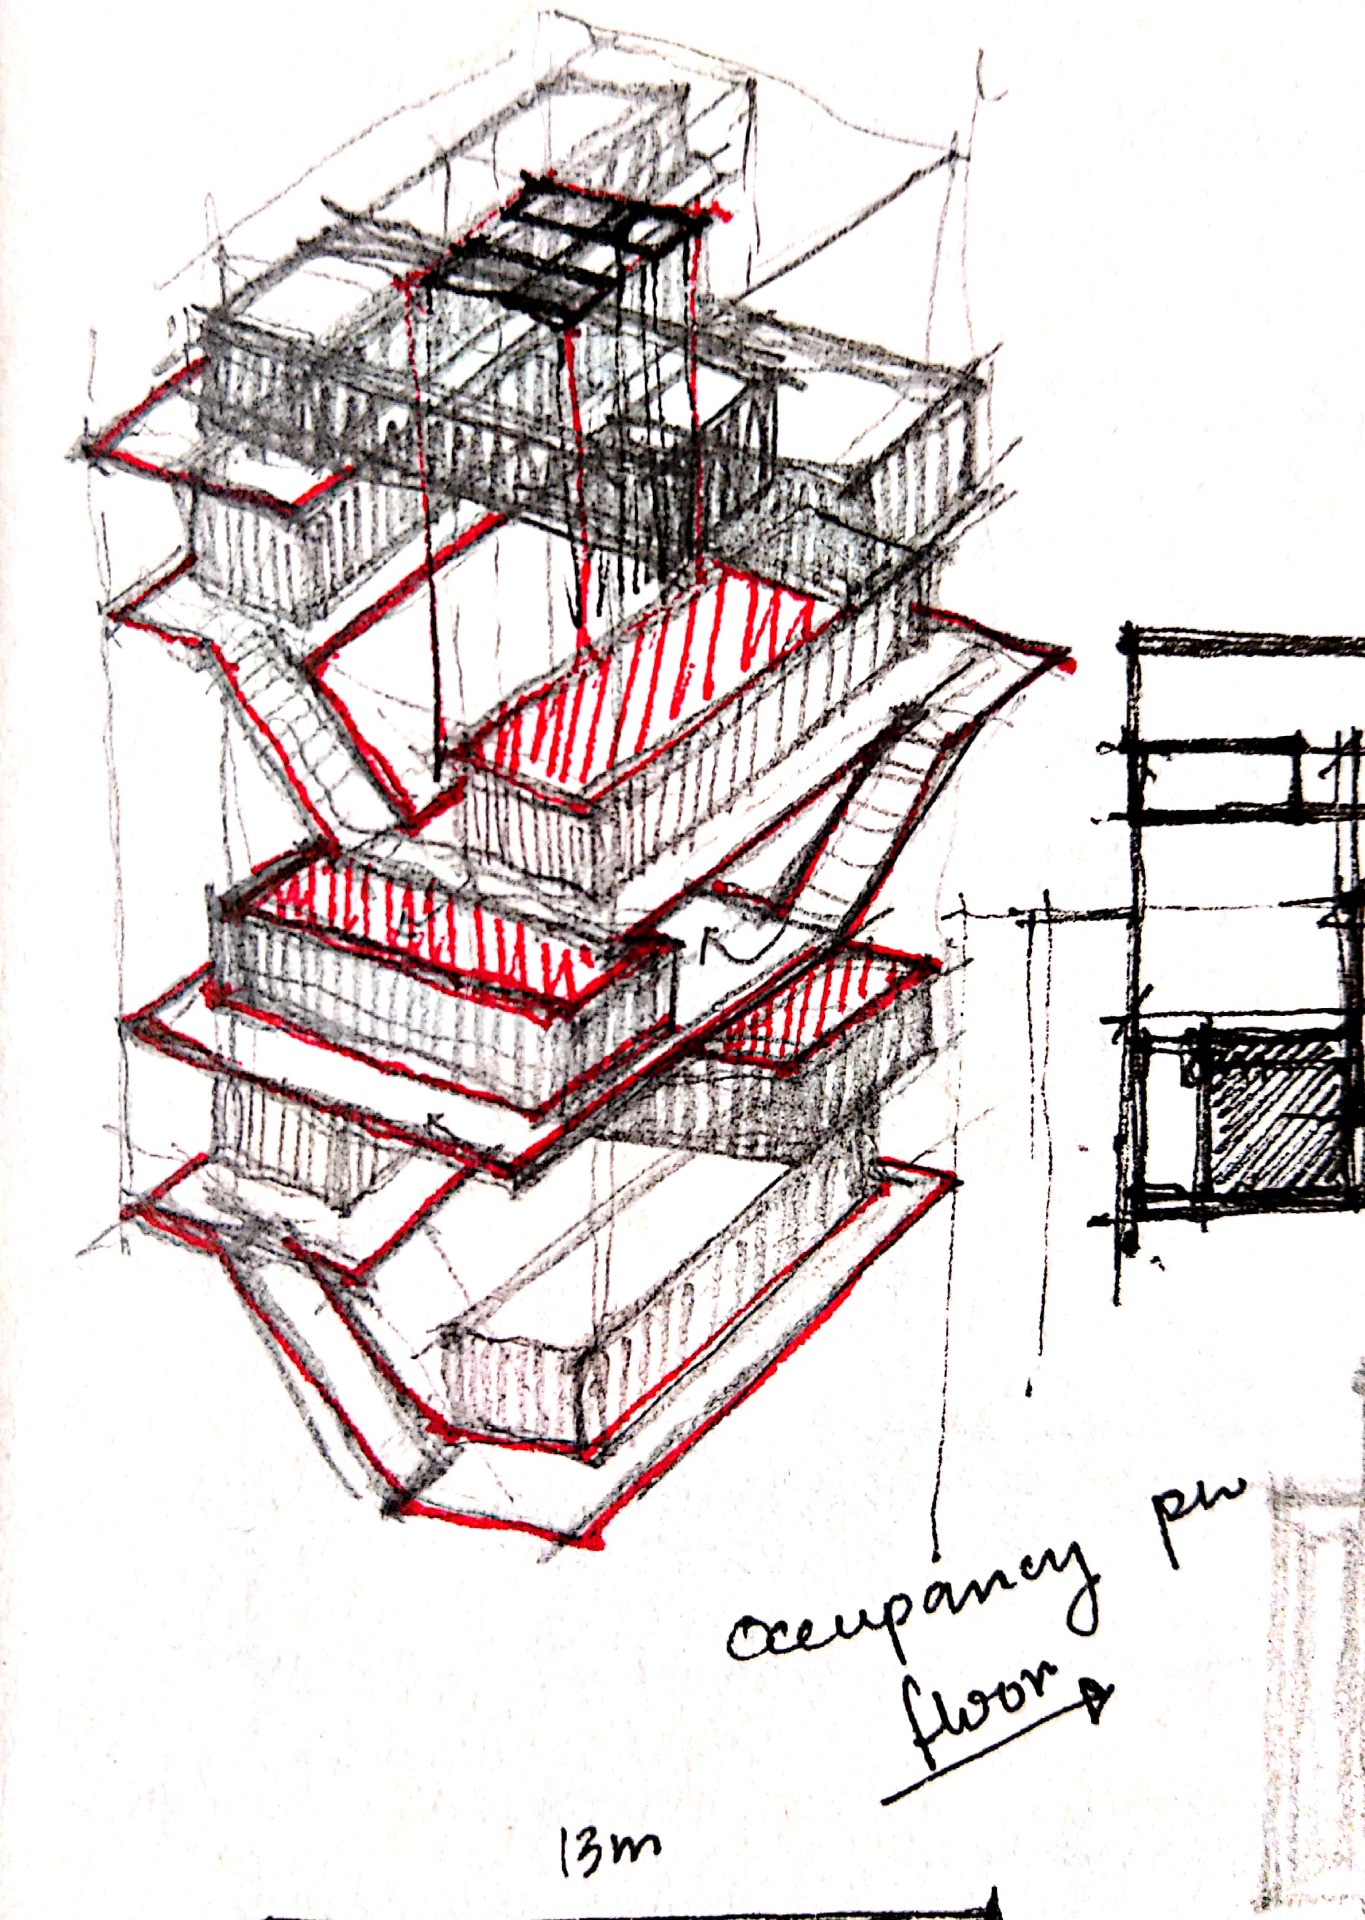 occupancy per
floor
13m